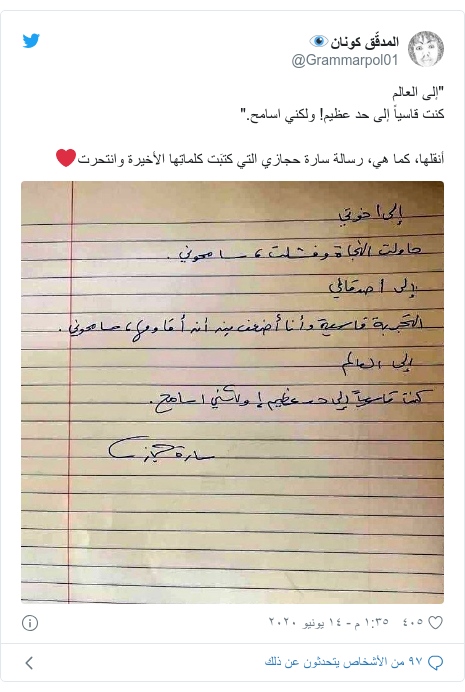 المدقّق كونان
@Grammarpol01
"إلى العالم
كنت قاسياً إلى حد عظيم! ولكني اسامح."
أنقلها، كما هي، رسالة سارة حجازي التي كتبَت كلماتِها الأخيرة وانتحرت
إلى أخوتي
حاولت النجاة وفشلت، سامحوني.
إلى أصدقائي
التجربة قاسية وأنا أضعف من أن أقاومها، سامحوني.
إلى العالم
كنت قاسياً إلى حد عظيم! ولكني اسامح.
سارة حجازي
٤٠٥ ١:٣٥ م - ١٤ يونيو ٢٠٢٠
٩٧ من الأشخاص يتحدثون عن ذلك